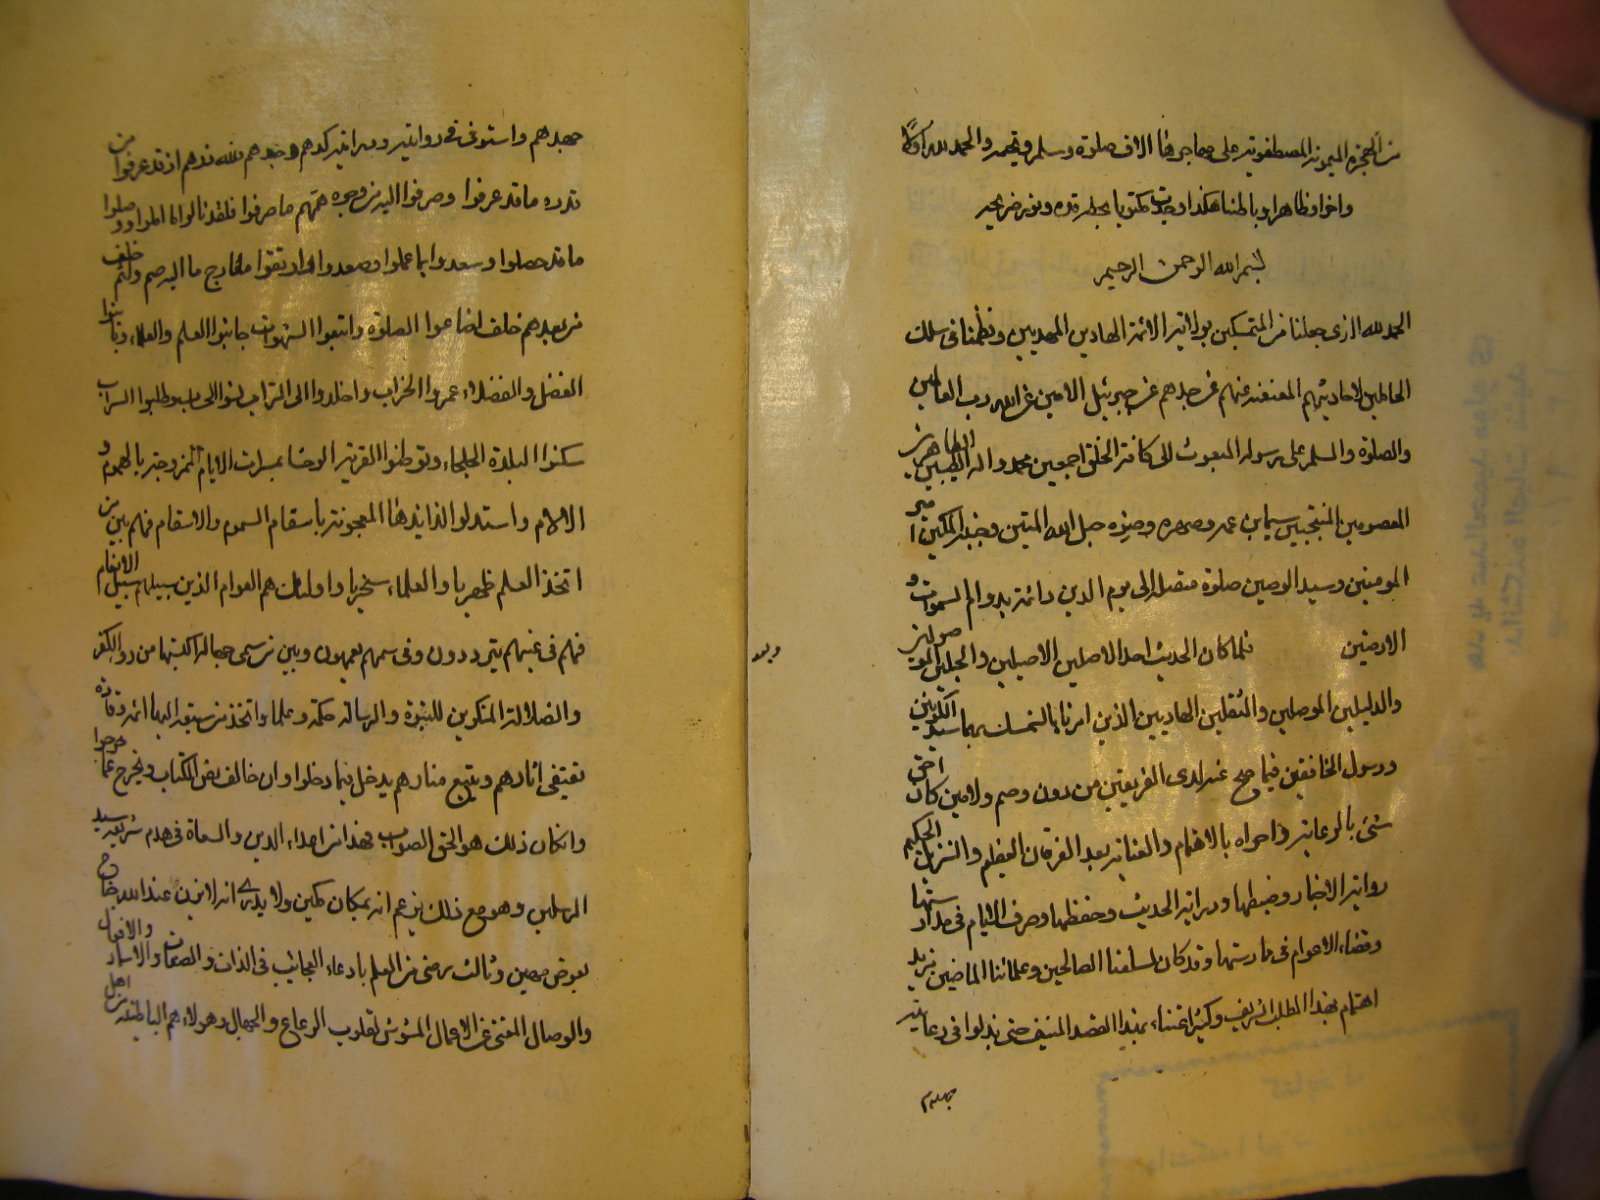 من الهجرة الميمونة المصطفوية على مهاجرها الاف صلوة وسلم وتحية والحمد لله اولا
واخرا وظاهرا وباطنا هكذا وجدت مكتوبا بخطه قده ونور ضريحه
بسم الله الرحمن الرحيم
الحمد لله الذى جعلنا من المتمسكين بولاية الائمة الهادين المهديين ونظمنا فى سلك
الحاملين لاحاديثهم المعنعنة عنهم عن جدهم عن جبرئيل الامين عن الله رب العالمين
والصلوة والسلم على رسوله المبعوث الى كافة الخلق اجمعين محمد واله الطيبين الطاهرين
المعصومين المنتجبين سيما ابن عمه وصهره وصنوه حبل الله المتين وجنبه المكين امير
المومنين وسيد الوصيين صلوة متصلة الى يوم الدين دائمة بدوام السموات و
الارضين وبعد فلما كان الحديث احد الاصلين الاصيلين والحبلين الموصولين
والدليلين الموصلين والثقلين الهاديين الذين امرنا بالتمسك بهما سيد الكونين
ورسول الخافقين فيما صح عنه لدى الفريقين من دون وصم ولا مين كان احق
شئ بالرعاية واحراه بالاهتمام والعناية بعد الفرقان العظيم والتنزيل الحكيم
رواية الاخبار وضبطها ودراية الحديث وحفظها وصرف الايام فى مدارستها
وقضاء الاعوام فى ممارستها وقد كان لسلفنا الصالحين وعلمائنا الماضين مزيد
اهتمام بهذا المطلب الشريف وكثير اعتناء بهذا القصد المنيف حتى بذلوا فى رعايته
جهدهم
جهدهم واستوفى فى روايته ودرايته كدهم وجدهم فلله درهم اذ قد عرفوا من
قدره ما قد عرفوا وصرفوا اليه من وجوه هممهم ما صرفوا فلقد نالوا ما املوا ووصلوا
ما قد حصلوا وسعدوا بما عملوا وصعدوا وارتقوا معارج ما اليه صم ولثم خلف
من بعدهم خلف اضاعوا الصلوة واتبعوا الشهوات جانبوا العلم والعلماء وباينوا
الفضل والفضلاء عمروا الخراب واخلدوا الى التراب نسوا الحساب وطلبوا السراب
سكنوا البلدة الجلحاء وتوطنوا القرية الوخشا بمسرات الايام الممزوجة بالهموم و
الالام واستدلوا لذايذها المعجونة باسقام السموم والاسقام فهم بين من
اتخذ العلم ظهريا والعلماء سخريا واولئك هم العوام الذين سبيلهم سبيل الانعام
فهم فى غيهم يترددون وفى سمهم يعمهون وبين من سمى جهالة اكتسبها من رؤ الكفر
والضلالة المنكرين للنبوة والرسالة حكمة وعلما واتخذ من سبقه اليها ائمة وقادة
يقتفى اثارهم ويتبع منارهم يدخل فيما دخلوا وان خالف نص الكتاب ويخرج عما خرجوا
وان كان ذلك هو الحق الصواب فهذا من اعداء الدين والسعاة فى هدم شريعة سيد
المرسلين وهو مع ذلك يزعم انه بمكان مكين ولا يدرى انه لا يزن عند الله جناح
بعوض مهين وثالث رضى من العلم بادعاء العجايب فى الذات والصفات والاسماء والافعال
والوصال المغنى عن الاعمال المشوش لقلوب الرعاع والجهال وهولاء هم الباطنية من اهل